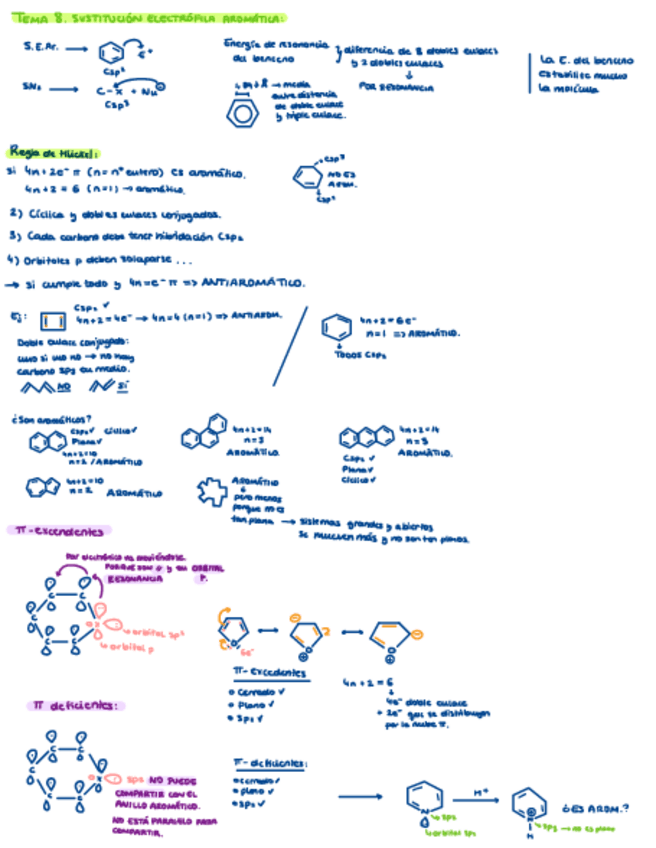 TEMA 8. SUSTITUCIÓN ELECTRÓFILA AROMÁTICA:
S.E.Ar. → E+
Csp²
SN₂ → C-X + Nu⊖
Csp³
Energía de resonancia
del benceno
diferencia de 3 dobles enlaces
y 2 dobles enlaces
POR RESONANCIA
→ media
entre distancia
de doble enlace
y triple enlace.
La E. del benceno
estabiliza mucho
la molécula
Regla de Hückel:
Si 4n+2e⁻ π (n = nº entero) es aromático.
4n+2=6 (n=1) → aromático.
csp³
NO ES
AROM.
csp³
2) Cíclica y dobles enlaces conjugados.
3) Cada carbono debe tener hibridación Csp₂
4) Orbitales p deben solaparse ...
→ si cumple todo y 4n=e⁻ π => ANTIAROMÁTICO.
Ej:
Csp₂ ✓
4n+2=4e⁻ → 4n=4 (n=1) => ANTIAROM.
Doble enlace conjugado:
uno si uno no → no hay
carbono sp₃ en medio.
NO
SÍ
4n+2=6e⁻
n=1 => AROMÁTICO.
TODOS Csp₂
¿Son aromáticos?
Csp₂✓ Cíclico✓
Plana✓
4n+2=10
n=2 / AROMÁTICO
4n+2=14
n=3
AROMÁTICO.
4n+2=14
n=3
AROMÁTICO.
Csp₂ ✓
Plana✓
Cíclico✓
4n+2=10
n=2 AROMÁTICO
AROMÁTICO
pero menos
porque no es
tan plana → sistemas grandes y abiertos
Se mueven más y no son tan planos.
π-excendentes
Par electrónico va moviéndose.
PORQUE SON
ORBITAL
RESONANCIA P.
orbital sp²
orbital p
6e⁻
π-excedentes
Cerrado ✓
Plano ✓
sp₂ ✓
4n+2=6
4e⁻ doble enlace
+ 2e⁻ que se distribuyen
por la nube π.
π deficientes:
sp₂ NO PUEDE
COMPARTIR CON EL
ANILLO AROMÁTICO.
NO ESTÁ PARALELO PARA
COMPARTIR.
π-deficientes:
cerrado✓
plano ✓
sp₂ ✓
N
sp₂
orbital sp₂
H⁺
N
H
sp₃ → no es plano
¿ES AROM.?